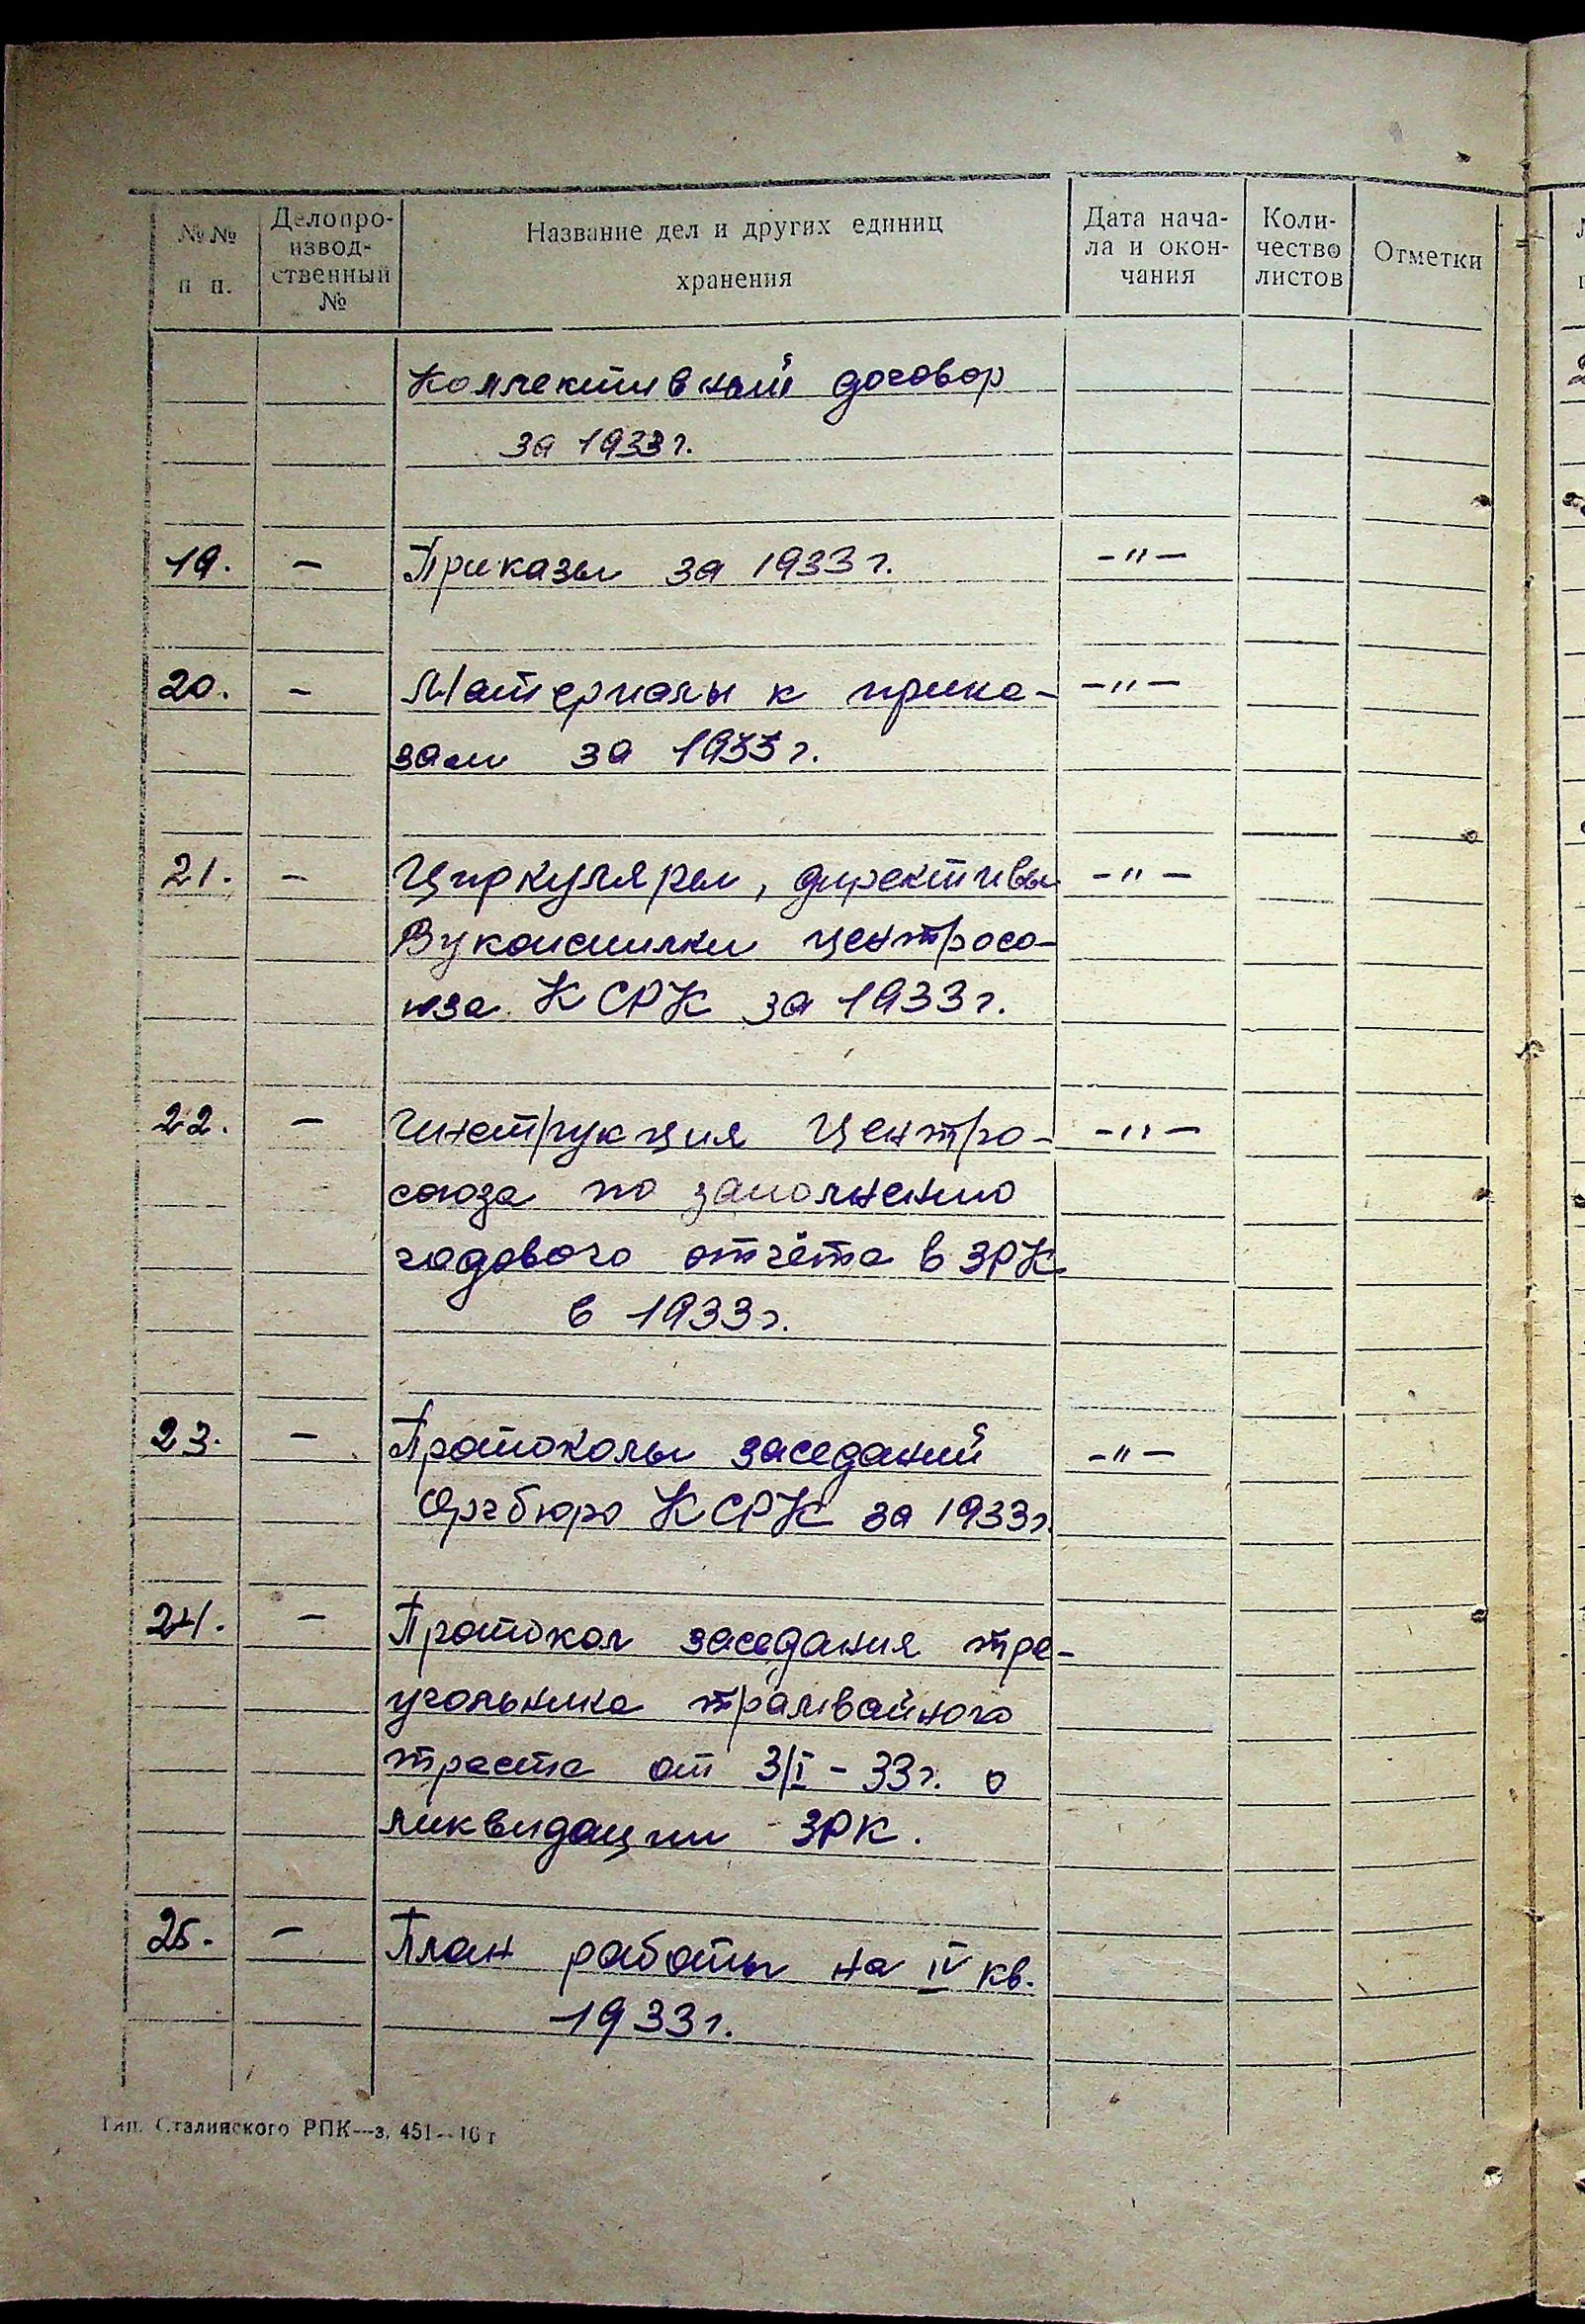 №№ п п.
Делопро-
извод-
ственный
№
Название дел и других единиц
хранения
Дата нача-
ла и окон-
чания
Коли-
чество
листов
Отметки
Коллективный договор
за 1933 г.
19. – Приказы за 1933 г. –"–
20. – Материалы к прика- –"–
зам за 1933 г.
21. – Циркуляры, директивы –"–
Вукопспилки центросо-
юза КСРК за 1933 г.
22. – Инструкция Центро- –"–
союза по заполнению
годового отчёта в ЗРК
в 1933 г.
23. – Протоколы заседаний –"–
Оргбюро КСРК за 1933 г.
24. – Протокол заседания тре-
угольника трамвайного
треста от 3/I – 33 г. о
ликвидации ЗРК.
25. – План работы на IV кв.
1933 г.
Тип. Сталинского РПК—з. 451—10 т